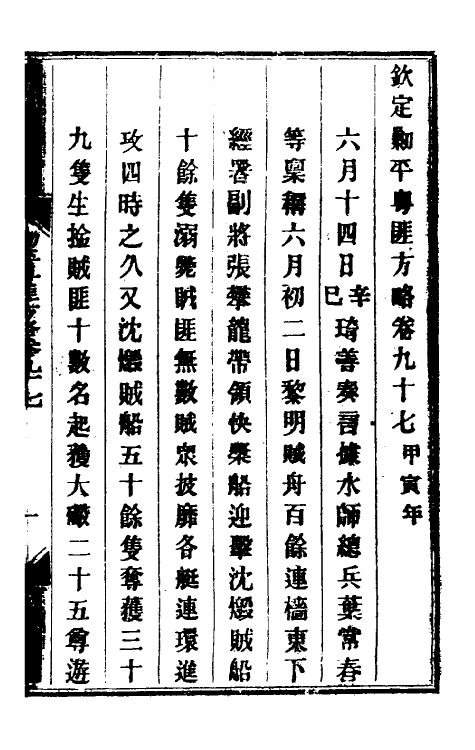 欽定勦平粤匪方略卷九十七甲寅年
六月十四日辛巳琦善奏言據水師總兵葉常春
等稟稱六月初二日黎明賊舟百餘連檣東下
經署副將張攀龍帶領快槳船迎擊沈燬賊船
十餘隻溺斃賊匪無數賊衆披靡各艇連環進
攻四時之久又沈燬賊船五十餘隻奪獲三十
九隻生擒賊匪十數名起獲大礮二十五尊遊